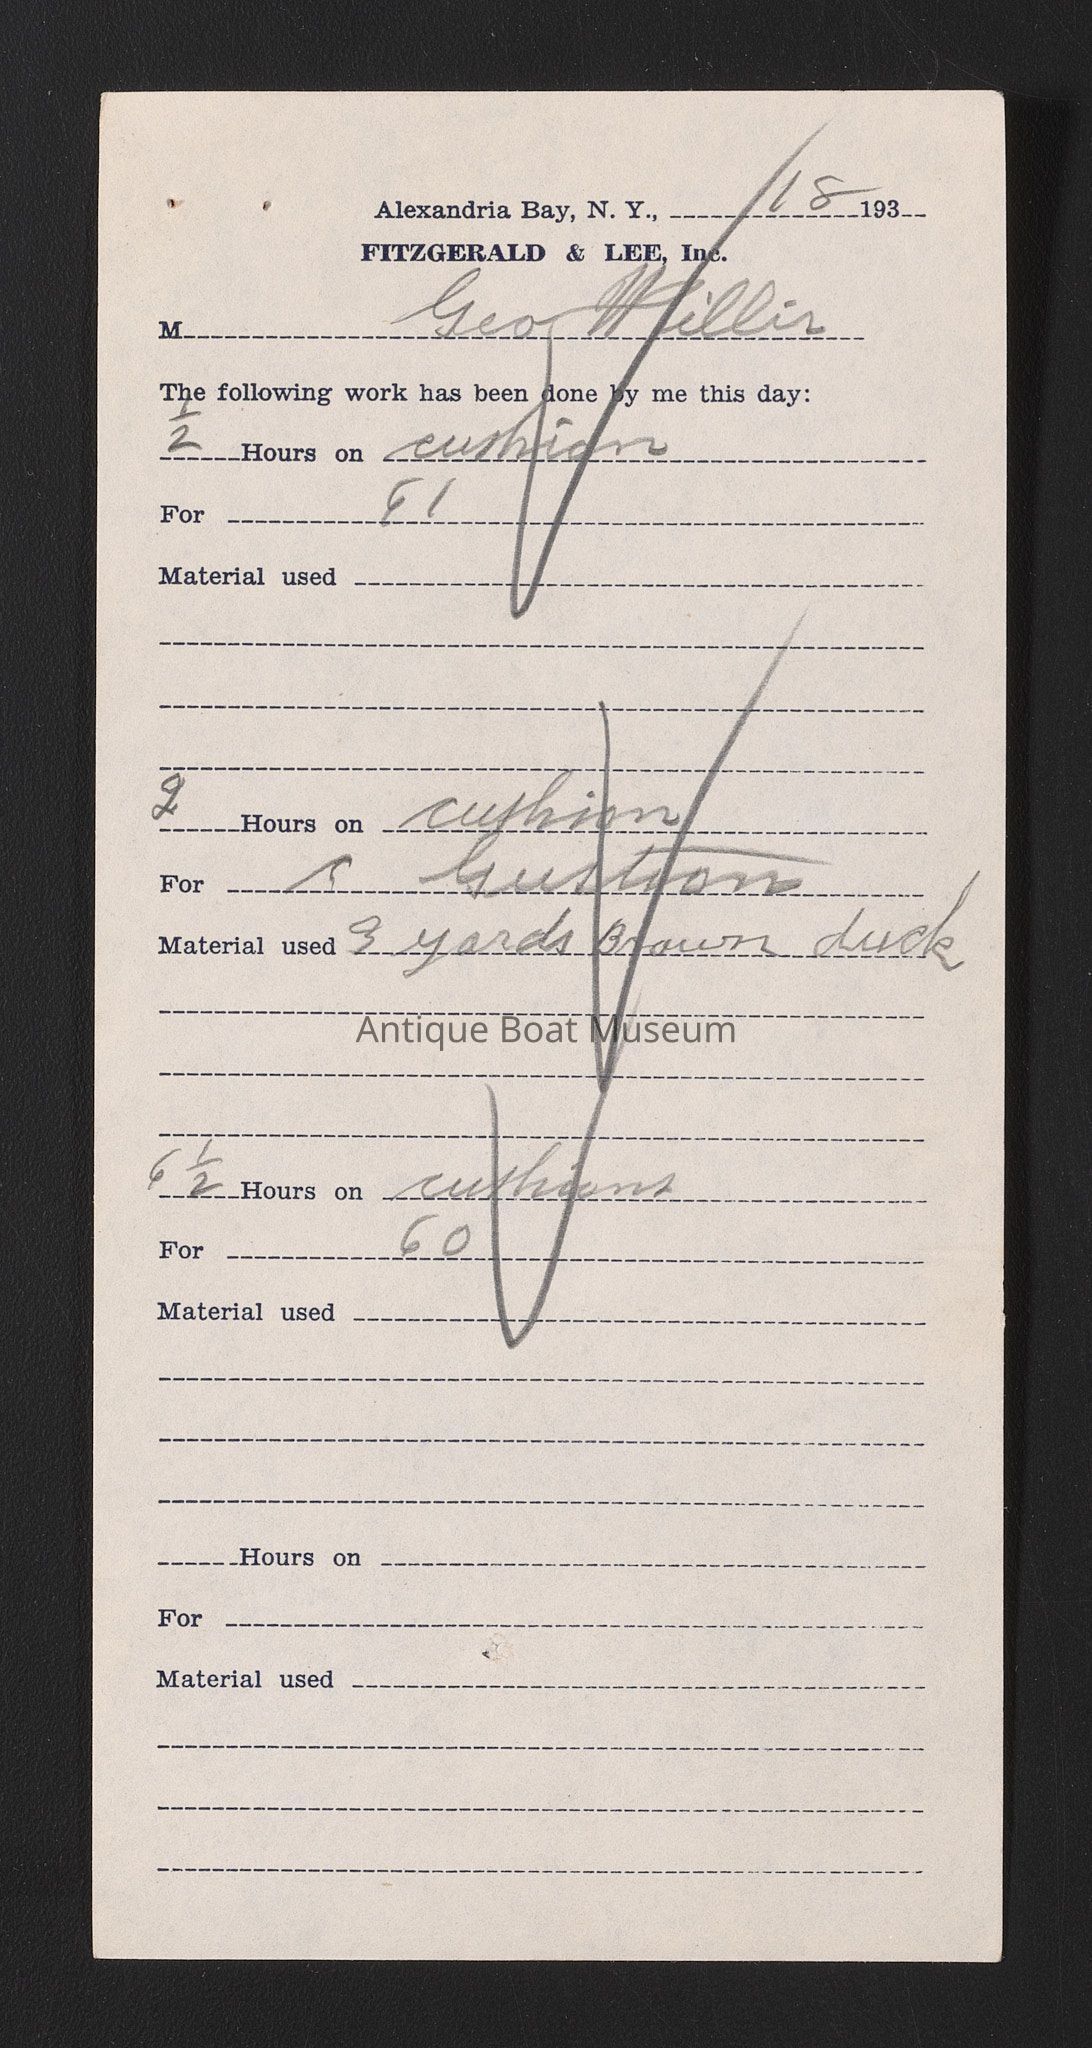 Alexandria Bay, N. Y., 18 193
FITZGERALD & LEE, Inc.
M Geo Willis
The following work has been done by me this day:
1/2 Hours on cushion
For 61
Material used
2 Hours on cushion
For
Material used 3 yards Brown duck
Antique Boat Museum
6 1/2 Hours on cushions
For 60
Material used
Hours on
For
Material used